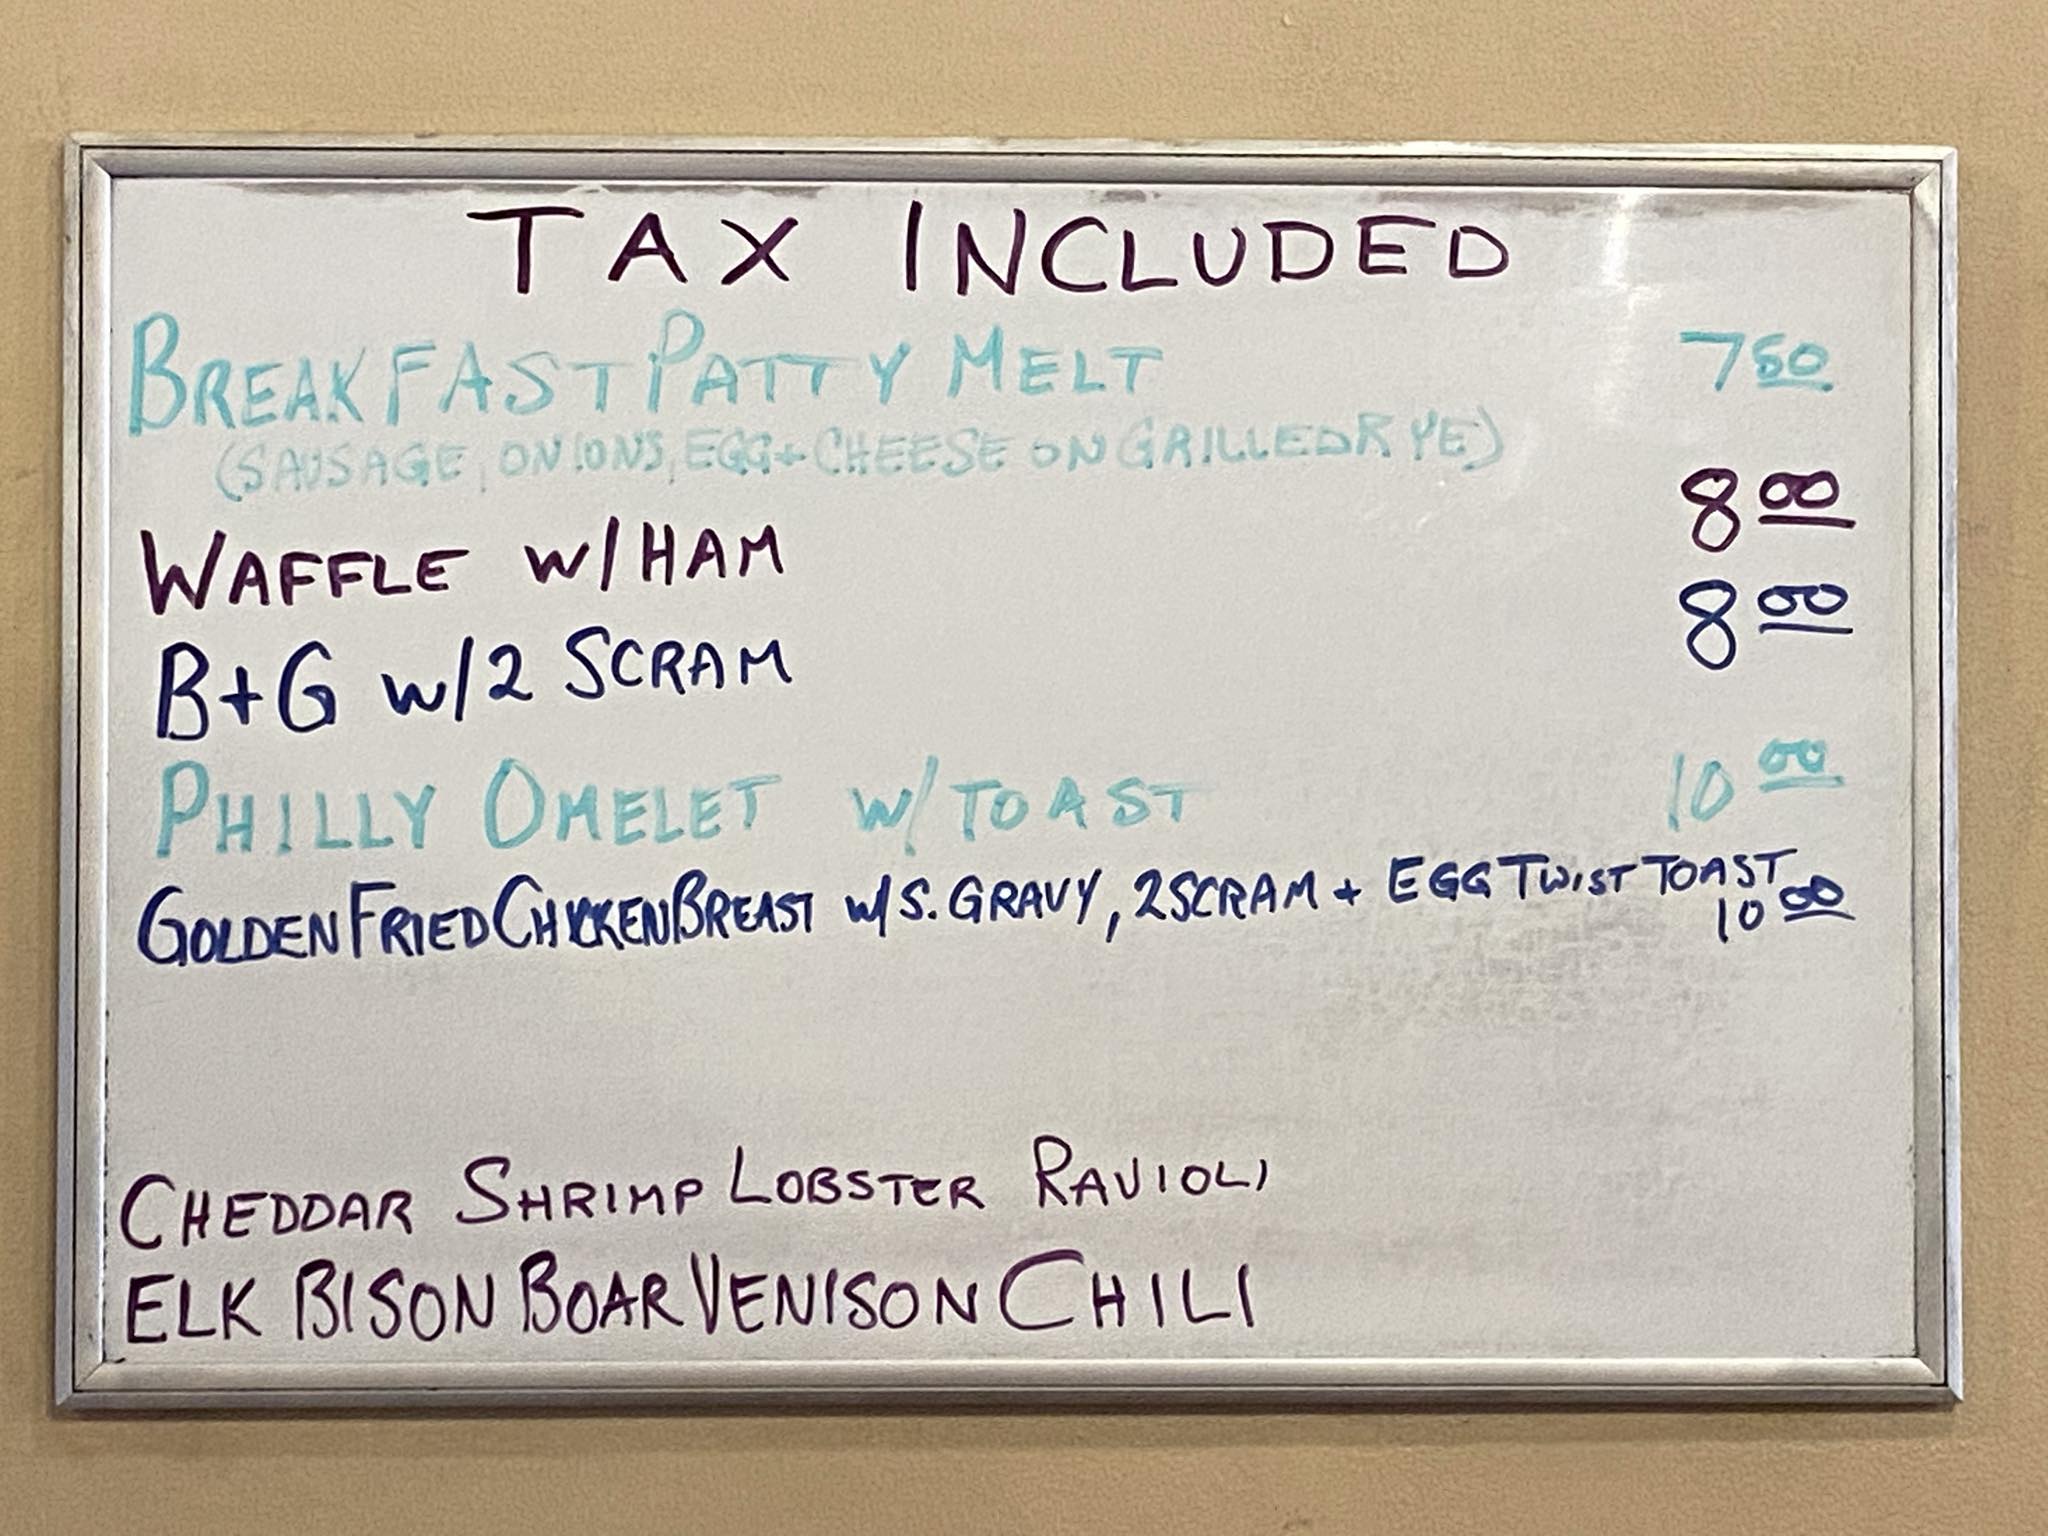 TAX INCLUDED
BREAKFAST PATTY MELT 7 50
(SAUSAGE, ONIONS, EGG + CHEESE ON GRILLED RYE)
WAFFLE W/ HAM 8 00
B+G W/2 SCRAM 8 00
PHILLY OMELET W/ TOAST 10 00
GOLDEN FRIED CHICKEN BREAST W/ S. GRAVY, 2 SCRAM + EGG TWIST TOAST
10 00
CHEDDAR SHRIMP LOBSTER RAVIOLI
ELK BISON BOAR VENISON CHILI